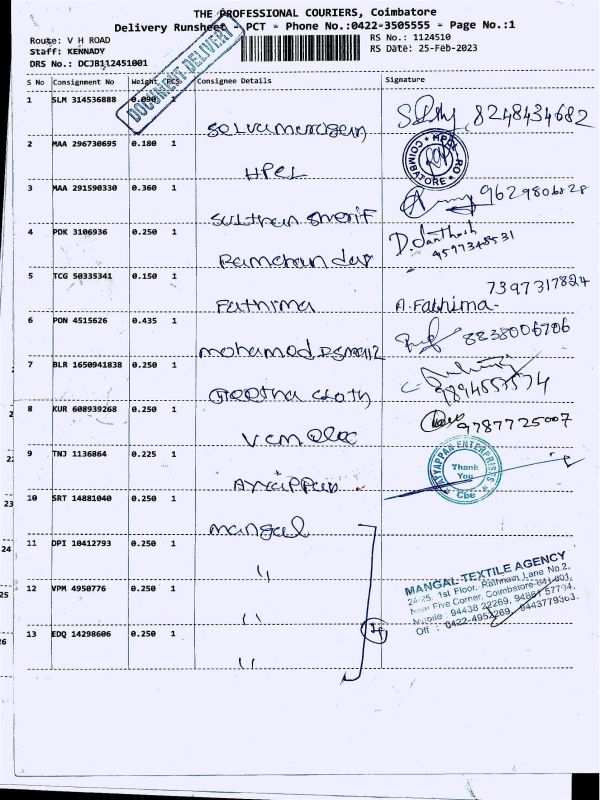 THE PROFESSIONAL COURIERS, Coimbatore
Delivery Runsheet - PCT - Phone No.:0422-3505555 - Page No.:1
Route: V H ROAD
RS No.: 1124510
Staff: KENNADY
RS Date: 25-Feb-2023
DRS No.: DCJB112451001
DOCUMENT DELIVERY
S No Consignment No Weight PCS Consignee Details Signature
1 SLM 314536888 0.090 1
8248434682
2 MAA 296730695 0.180 1
HPCL
COIMBATORE RO
3 MAA 291590330 0.360 1
Sulthan Sherif
4 PDK 3106936 0.250 1
Ramchandar
D. Santhosh
5 TCG 50335341 0.150 1
Fathima
7397317824
A. Fathima.
6 PON 4515626 0.435 1
8838006706
7 BLR 1650941838 0.250 1
Geetha Cloth
8 KUR 608939268 0.250 1
9787725007
9 TNJ 1136864 0.225 1
Ayyappan
AYYAPPAN ENTERPRISES
Thank
You
Cbe
10 SRT 14881040 0.250 1
Mangal
11 DPI 10412793 0.250 1
"
12 VPM 4950776 0.250 1
"
13 EDQ 14298606 0.250 1
"
MANGAL TEXTILE AGENCY
24/25, 1st Floor, Rathnam Lane No.2,
Near Five Corner, Coimbatore-641 001.
Mobile : 94438 22269, 94881 57794,
Off : 0422-4952269,